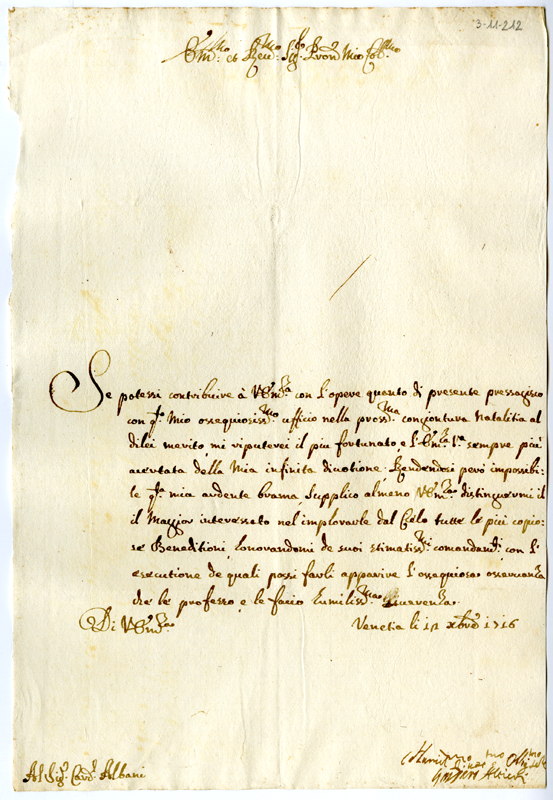 3-11-212
Em:mo et Reu:mo Sig.r Pron Mio Col:mo
Se potessi contribuire à V Em:za con l'opere quanto di presente pressagisco
con q.to Mio ossequiosiss:mo ufficio nella pross:ma congiontura Natalitia al
dilei merito, mi riputerei il piu fortunato, e l'Em:za V'a sempre più
accertata della Mia infinita diuotione; Rendendosi però impossibi:
le q.ta mia ardente brama, supplico almeno V Em:za distinguermi il
il Maggior interessato nel implorarle dal Cielo tutte le più copio:
se Beneditioni, honorandomi de suoi stimatiss:mi comandam:ti, con l'
esecutione de quali possi farli apparire l'ossequiosa osseruanza
che le professo, e le facio humiliss:ma Riuerenza.
Di V Em:za Venetia li 12 Xbre 1716
Al Sig.r Card.l Albani